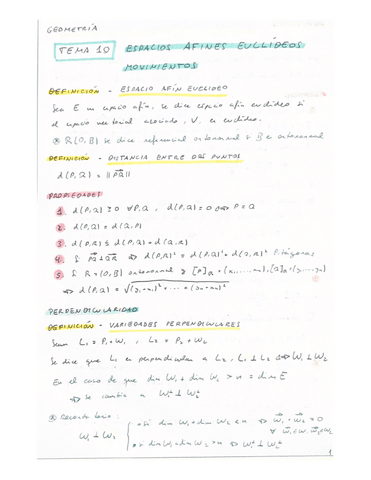 GEOMETRÍA
TEMA 10 ESPACIOS AFINES EUCLÍDEOS
MOVIMIENTOS
DEFINICIÓN - ESPACIO AFÍN EUCLÍDEO
Sea E un espacio afín, se dice espacio afín euclídeo si
el espacio vectorial asociado, V, es euclídeo.
⊛ R(O,B) se dice referencial ortonormal si B es ortonormal
DEFINICIÓN - DISTANCIA ENTRE DOS PUNTOS
d(P,Q) = ||PQ||
PROPIEDADES
1. d(P,Q) ≥ 0 ∀P,Q , d(P,Q) = 0 ⇔ P = Q
2. d(P,Q) = d(Q,P)
3. d(P,R) ≤ d(P,Q) + d(Q,R)
4. Si PQ ⊥ QR ⇔ d(P,R)² = d(P,Q)² + d(Q,R)² Pitágoras
5. Si R = (O,B) ortonormal y [P]R = (x1,...,xn), [Q]R = (y1,...,yn)
⇒ d(P,Q) = √(y1-x1)² + ... + (yn-xn)²
PERPENDICULARIDAD
DEFINICIÓN - VARIEDADES PERPENDICULARES
Sean L1 = P1 + W1 , L2 = P2 + W2
Se dice que L1 es perpendicular a L2, L1 ⊥ L2 ⇔ W1 ⊥ W2
En el caso de que dim W1 + dim W2 > n = dim E
⇒ Se cambia a W1⊥ ⊥ W2⊥
⊛ Recordatorio:
W1 ⊥ W2
• si dim W1 + dim W2 ≤ n ⇔ w1 · w2 = 0
∀ w1 ∈ W1 w2 ∈ W2
• si dim W1 + dim W2 > n ⇔ W1⊥ ⊥ W2⊥
1